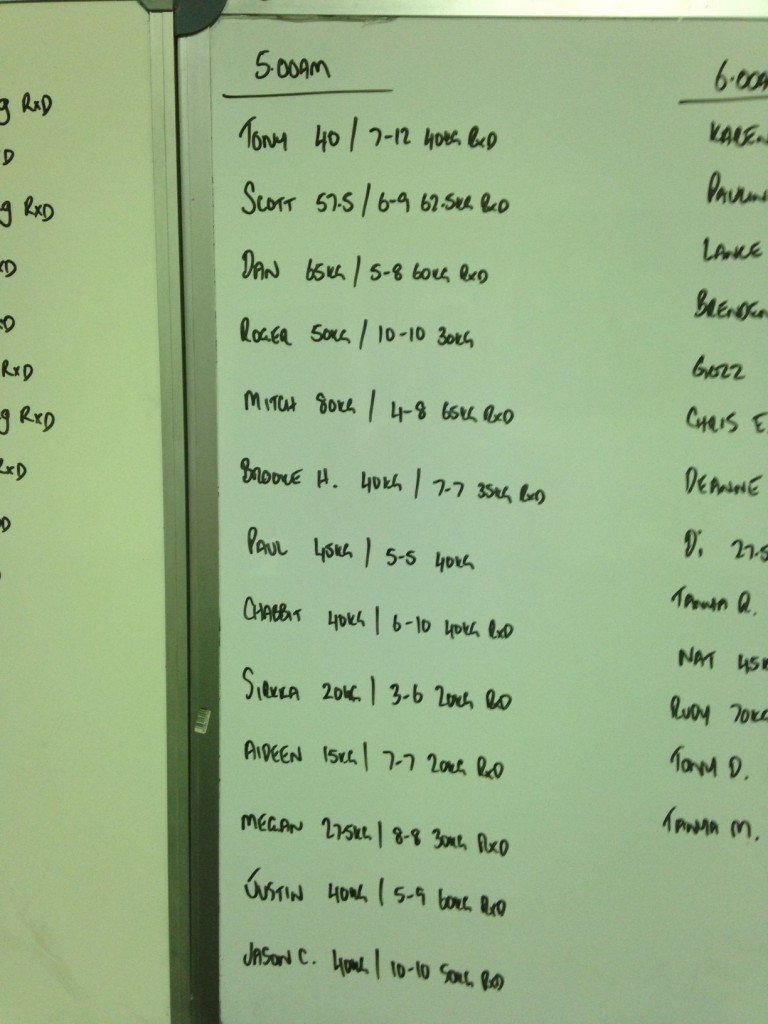 g RxD
D
g RxD
xD
xD
RxD
g RxD
RxD
D
5.00AM
TONY 40 / 7-12 40KG RxD
SCOTT 57.5 / 6-9 62.5KG RxD
DAN 65KG / 5-8 60KG RxD
ROGER 50KG / 10-10 30KG
MITCH 80KG / 4-8 65KG RxD
BROOKE H. 40KG / 7-7 35KG RxD
PAUL 45KG / 5-5 40KG
CHABBIT 40KG / 6-10 40KG RxD
SIRKKA 20KG / 3-6 20KG RxD
AIDEEN 15KG / 7-7 20KG RxD
MEGAN 27.5KG / 8-8 30KG RxD
JUSTIN 40KG / 5-9 60KG RxD
JASON C. 40KG / 10-10 50KG RxD
6.00A
KAREN
PAULIN
LANCE
BRENDEN
GUZZ
CHRIS E
DEANNE
Di 27.5
TANYA R.
NAT 45K
RUDY 70KG
TONY D.
TANYA M.